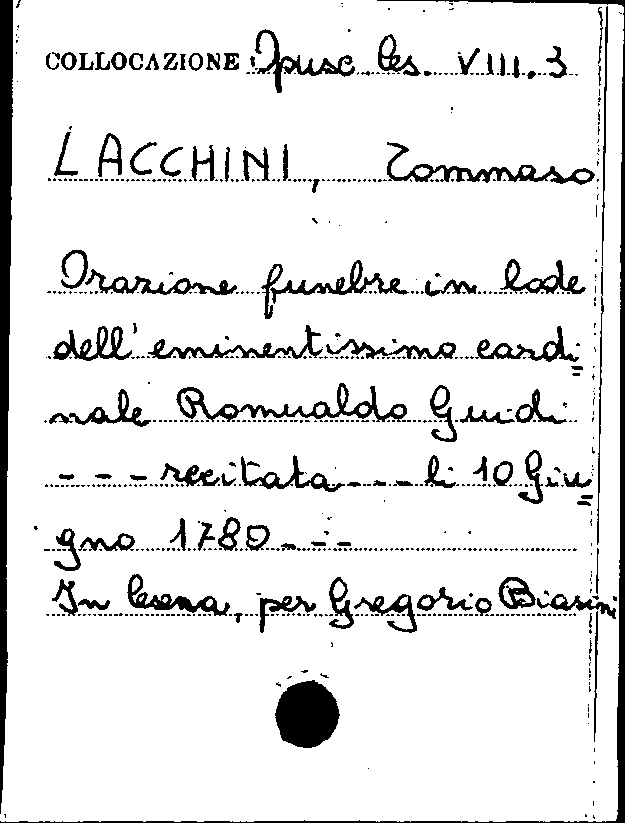 COLLOCAZIONE Opusc. Ces. VIII. 3
LACCHINI, Tommaso
Orazione funebre in lode
dell'eminentissimo cardi=
nale Romualdo Guidi
- - - recitata - - - li 10 Giu=
gno 1780 - - -
In Cesena, per Gregorio Biasini